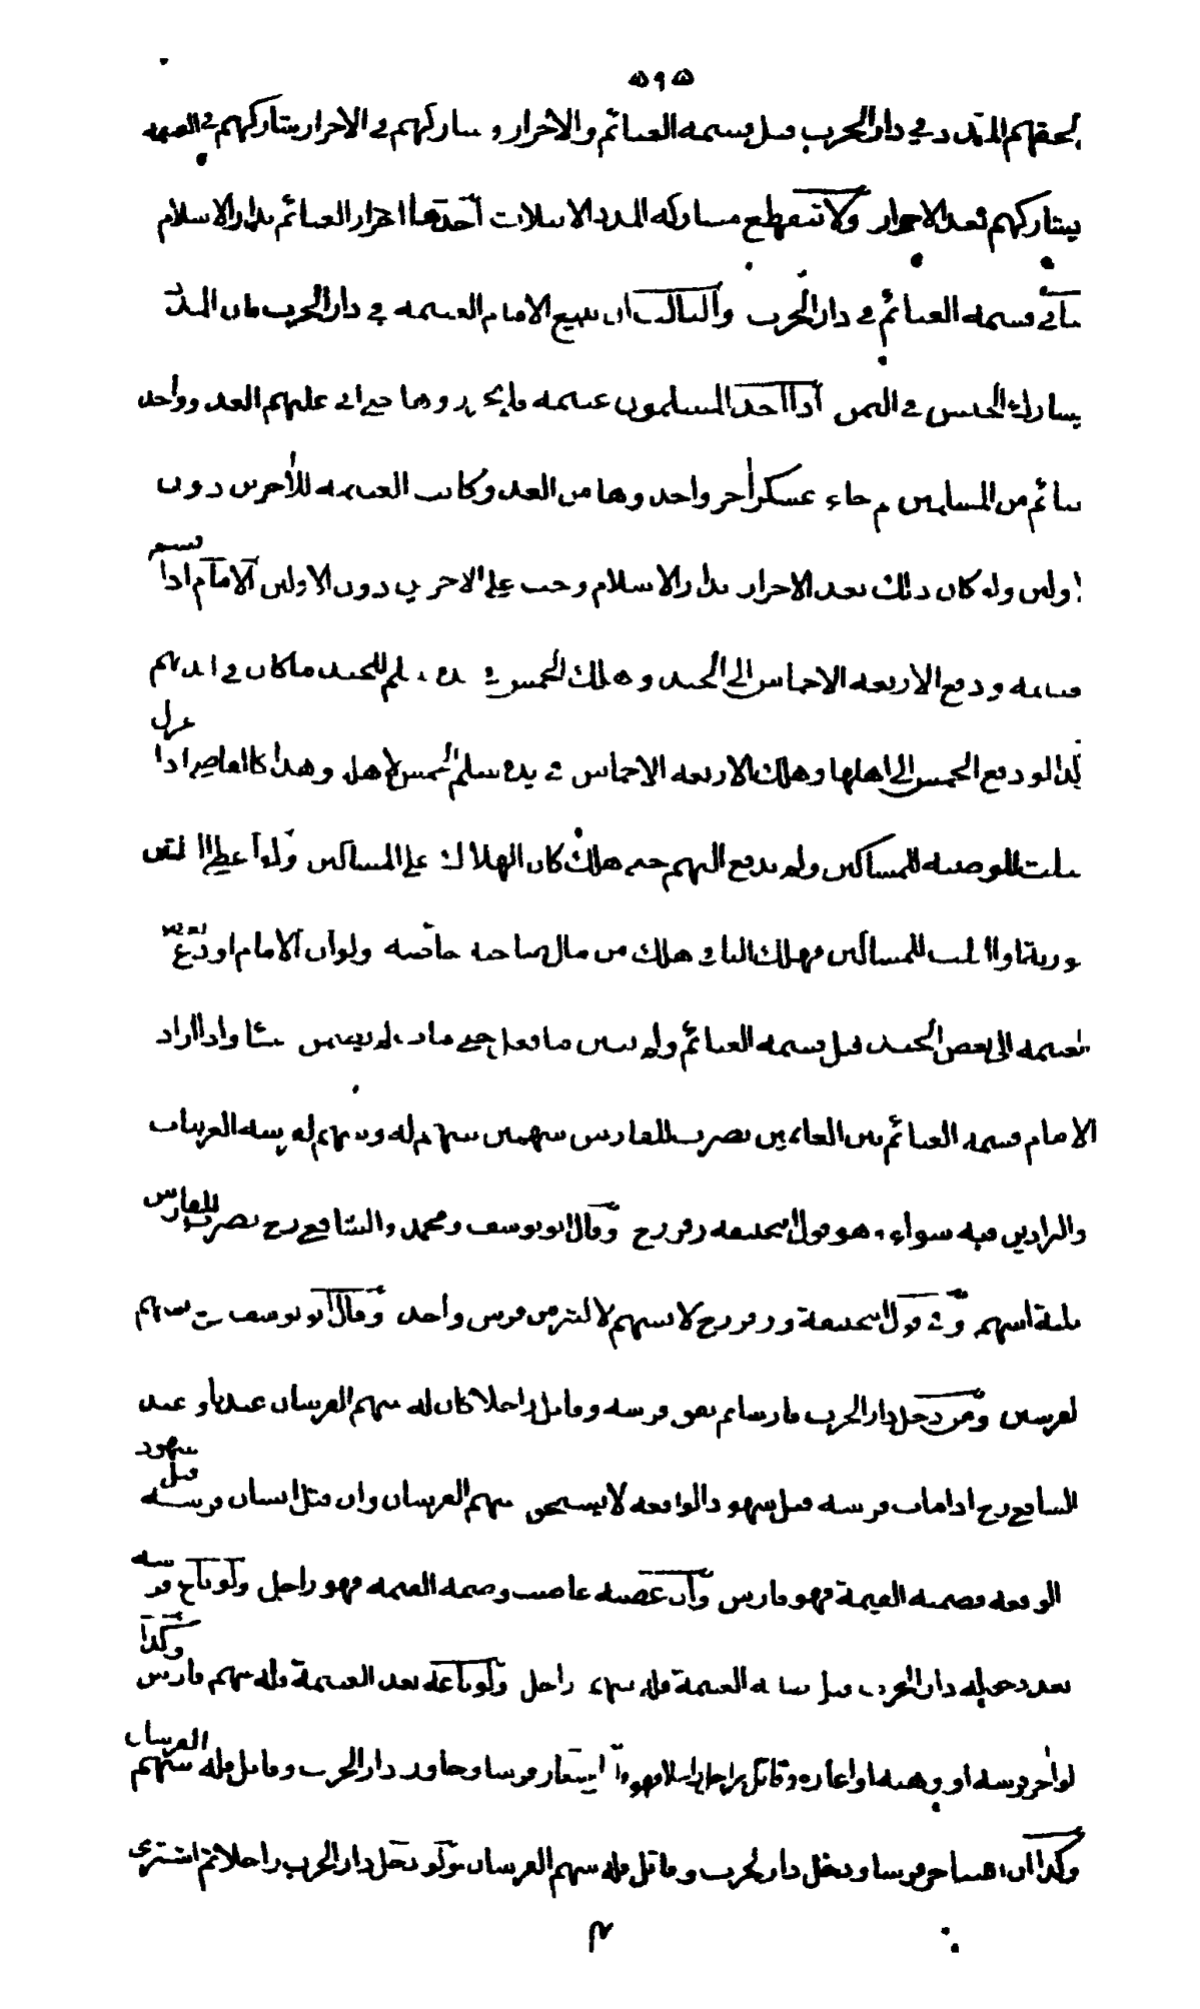 ٥٩٥
لحقهم المدد في دار الحرب قبل قسمة الغنائم والاحراز و شاركهم في الاحراز يشاركهم في الغنيمة
يشاركهم بعد الاحراز ولا تنقطع مشاركة المدد الا بثلاث أحدها احراز الغنائم بدار الاسلام
قسمة الغنائم في دار الحرب والثالث ان يبيع الامام الغنيمة في دار الحرب فان المدد
يشارك الجيش في الثمن اذا اخذ المسلمون غنيمة حتى علبهم العدو واخذ
من المسلمين ثم جاء عسكر آخر واخذوها من العدو كانت الغنيمة للآخرين دون
الاولين ولو كان ذلك بعد الاحراز بدار الاسلام وجب على الاخرين دون الاولين الامام اذا قسم
ودفع الاربعة الاخماس الى الجند وهلك الخمس في يده سلم للجند ما كان في ايديهم
كذا لو دفع الخمس الى اهلها وهلك الاربعة الاخماس في يده سلم الخمس لاهله وهذا كالقاضي اذا عزل
للمساكين ولم يدفع اليهم حتى هلك كان الهلاك على المساكين ولو اعطى الثلثين
للمساكين فهلك الباقي هلك من مال صاحبه خاصة ولو ان الامام اودع بعض
الغنيمة الى بعض الجند قبل قسمة الغنائم ولم يبين ما فعل حتى مات لم يضمن شيئا واذا اراد
الامام قسمة الغنائم بين الغانمين يضرب للفارس سهمين سهم له وسهم لفرسه العربيات
والبراذين فيه سواء هو قول ابي حنيفة وزفر رح وقال ابو يوسف ومحمد والشافعي رح يضرب للفارس
ثلثة اسهم وفي قول ابي حنيفة وزفر رح لا يسهم لاكثر من فرس واحد وقال ابو يوسف رح يسهم
لفرسين ومن دخل دار الحرب فارسا ثم نفق فرسه وقاتل راجلا كان له سهم الفرسان عندنا وعند
الشافعي رح اذا مات فرسه قبل شهود الواقعة لا يستحق سهم الفرسان وان قتل انسان فرسه قبل شهود
الوقعة وضمنه القيمة فهو فارس وان غصبه غاصب وضمنه القيمة فهو راجل ولو باع فرسه
بعد دخوله دار الحرب قبل الغنيمة فله سهم راجل ولو باعه بعد الغنيمة فله سهم فارس وكذا
لو آجر فرسه او وهبه او اعاره وقاتل راجلا استعار فرسا وجاوز دار الحرب وقاتل فله سهم الفرسان
وكذا ان استاجر فرسا ودخل دار الحرب وقاتل فله سهم الفرسان ولو دخل دار الحرب راجلا ثم اشترى